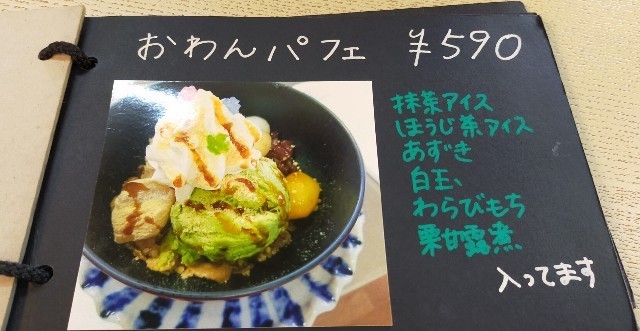 おわんパフェ ¥590
抹茶アイス
ほうじ茶アイス
あずき
白玉、
わらびもち
栗甘露煮
入ってます